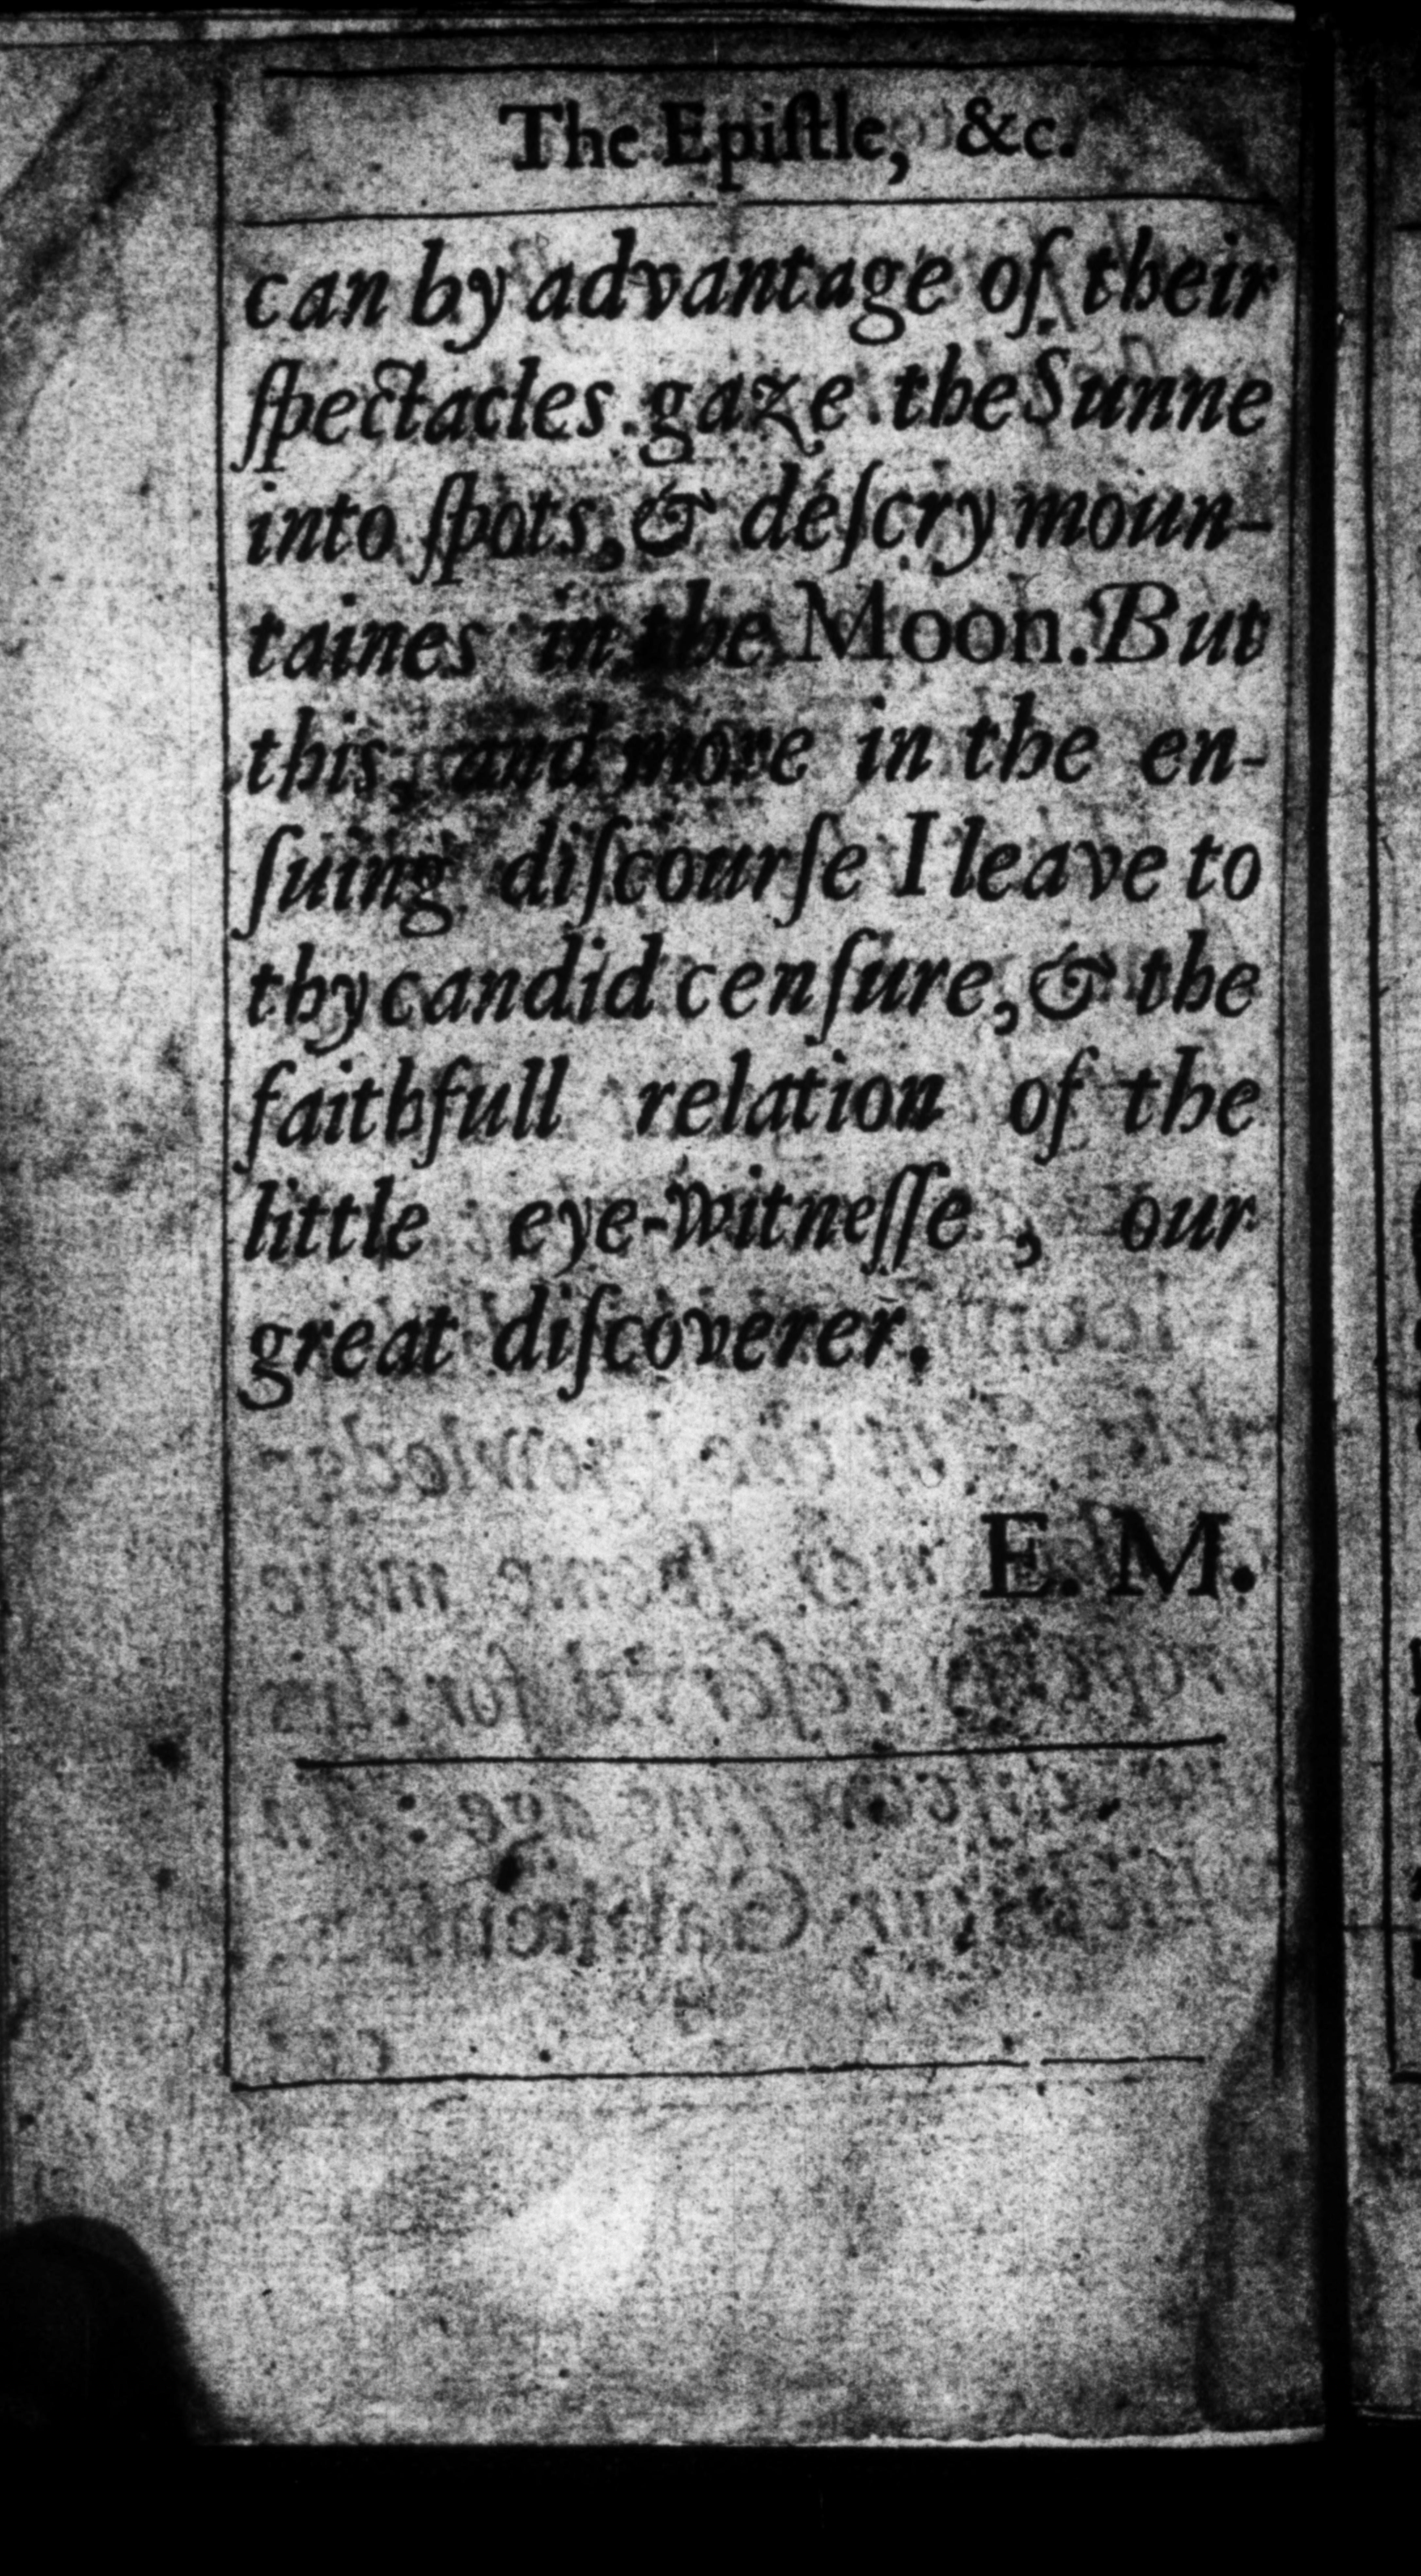 The Epiſtle, &c.
can by advantage of their
ſpectacles gaze the Sunne
into ſpots, & deſcry moun-
taines in the Moon. But
this, and more in the en-
ſuing diſcourſe I leave to
thy candid cenſure, & the
faithfull relation of the
little eye-witneſſe, our
great diſcoverer.
E. M.